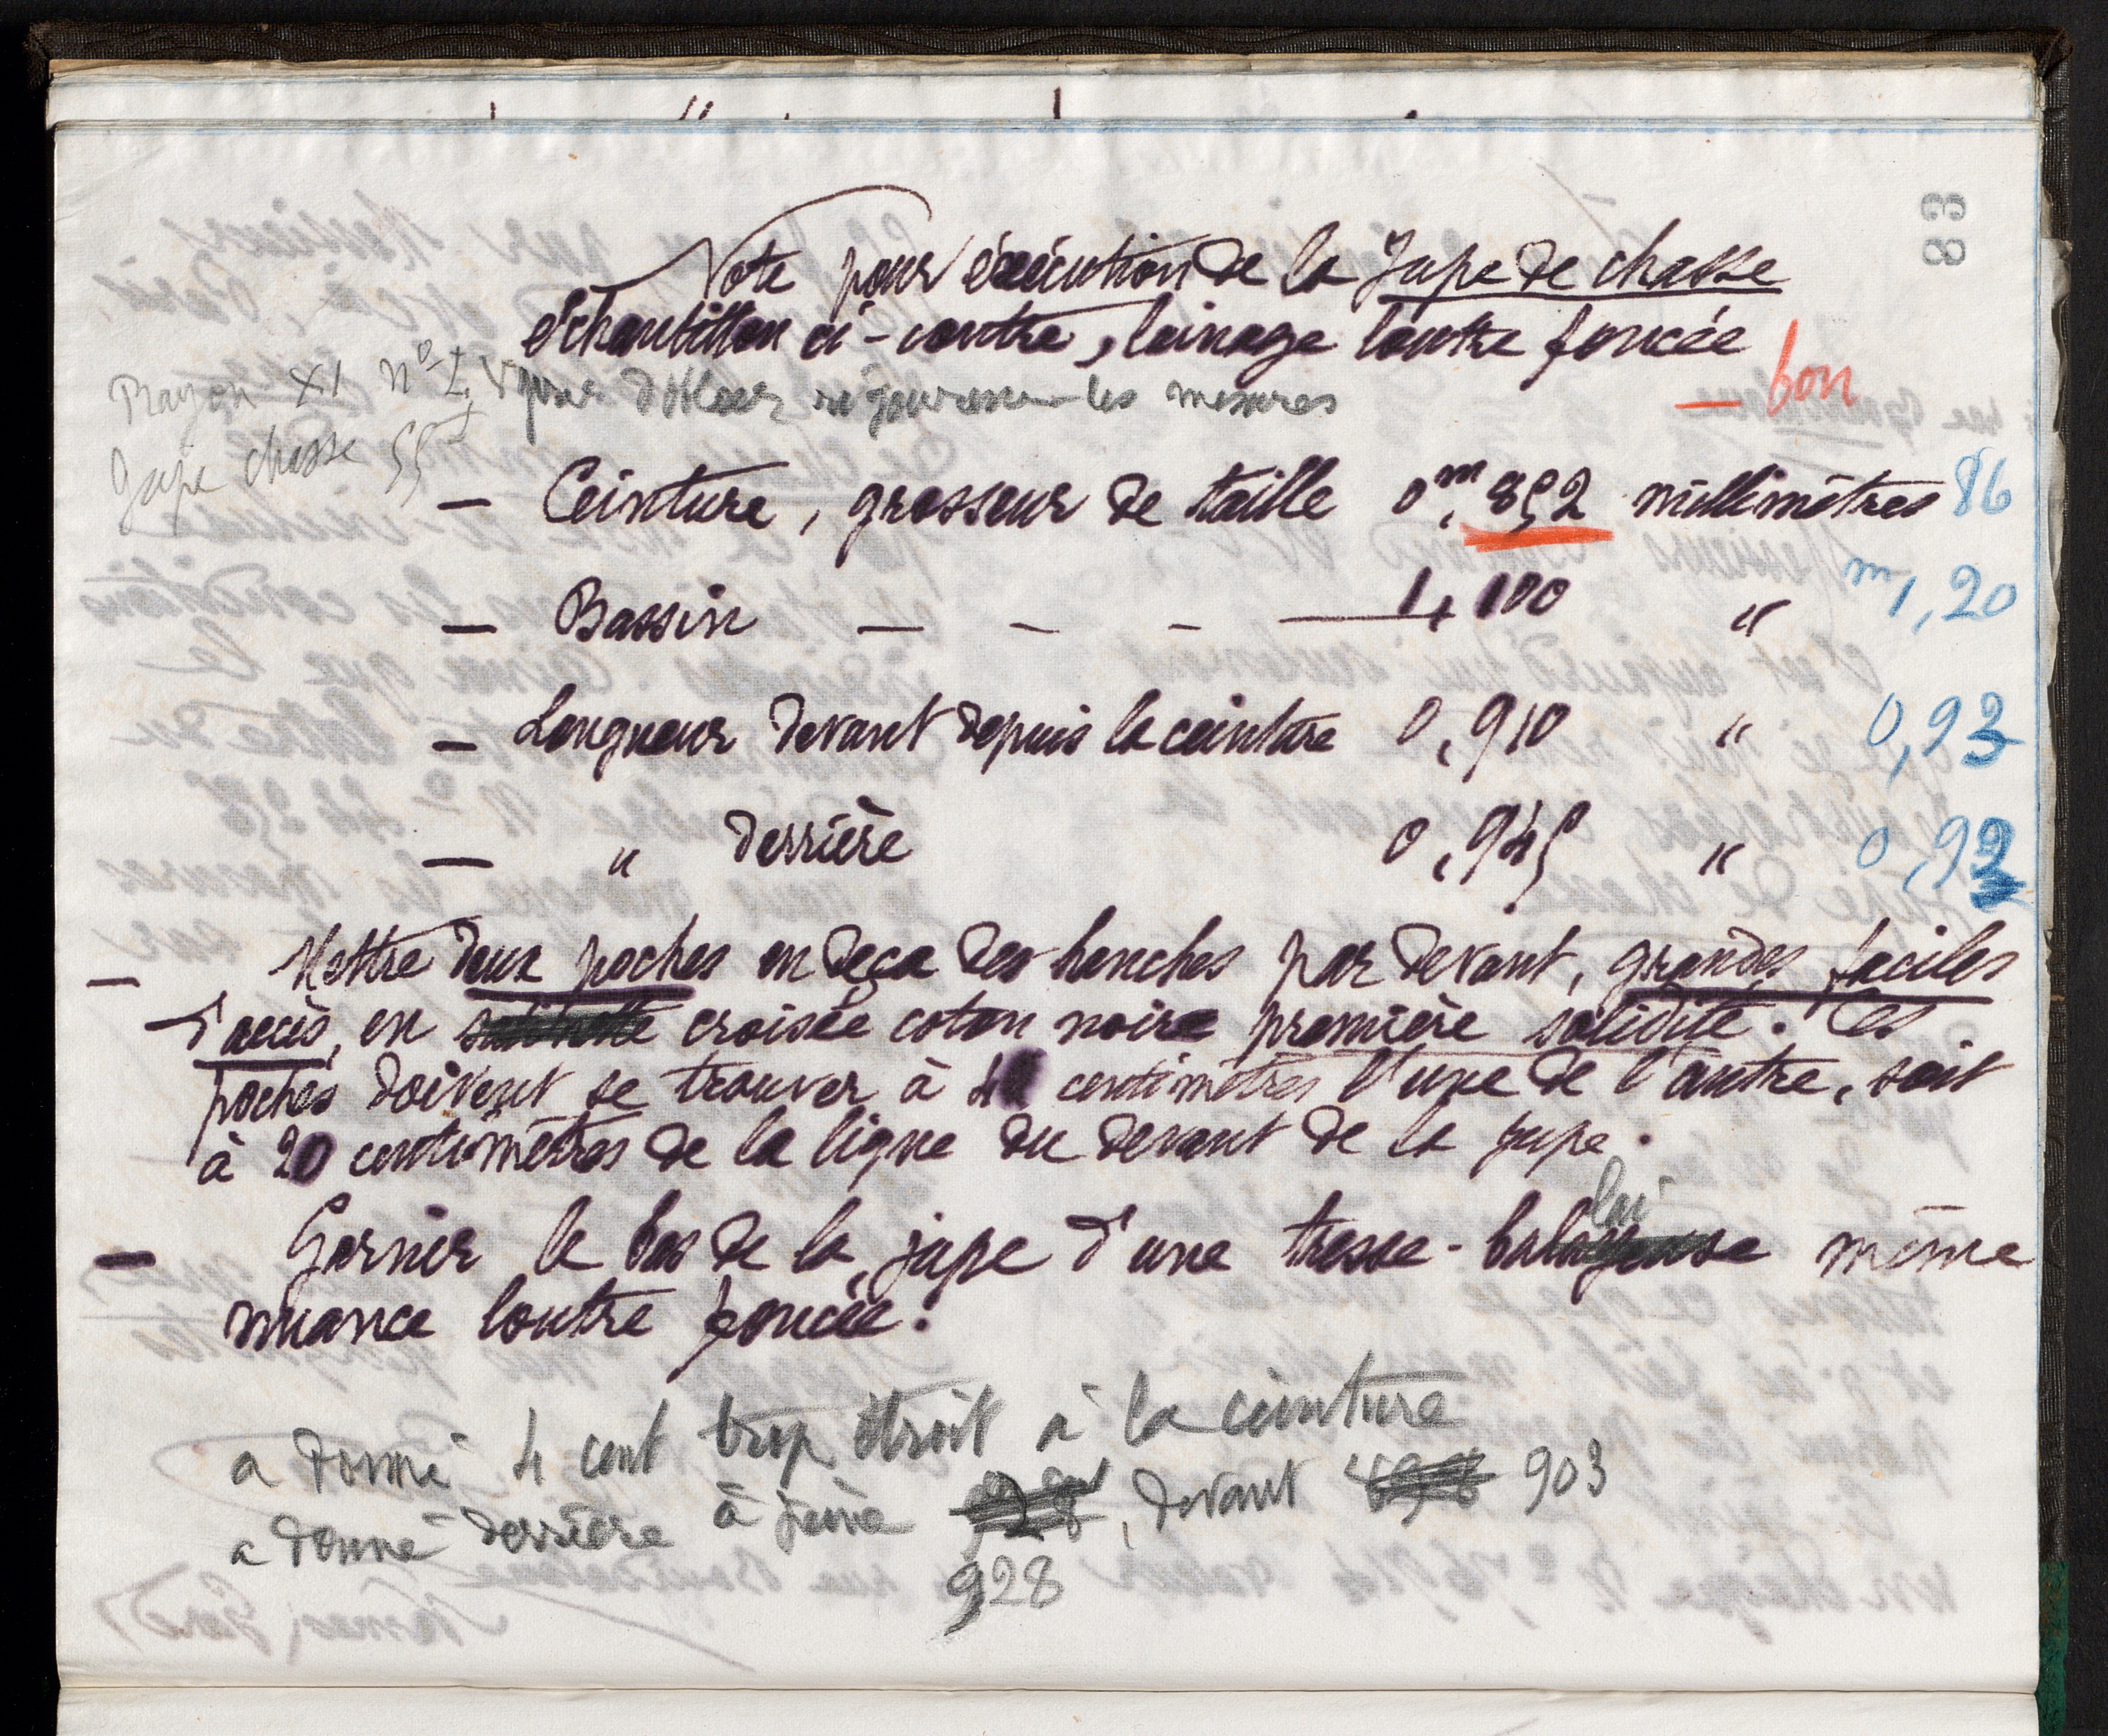 83
Note pour éxécution de la Jupe de chasse
échantillon ci-contre, lainage loutre foncée
— bon
Rayon XI no
Jupe chasse
les mesures
— Ceinture, grosseur de taille 0m,852 millimètres 86
— Bassin — — — — 1,100 " m1,20
— Longueur devant depuis la ceinture 0,910 " 0,93
— " derrière 0,945 " 0,92
— Mettre deux poches en deça des hanches par devant, grandes faciles
d'accès, en croisée coton noire première solidité. Ces
poches doivent se trouver à 40 centimètres l'une de l'autre, soit
à 20 centimètres de la ligne du devant de la jupe.
lai
— Garnir le bas de la jupe d'une tresse-balayeuse même
nuance loutre foncée.
a donné 4 cent trop étroit à la ceinture
a donné derrière à peine 928, devant 898 903
928